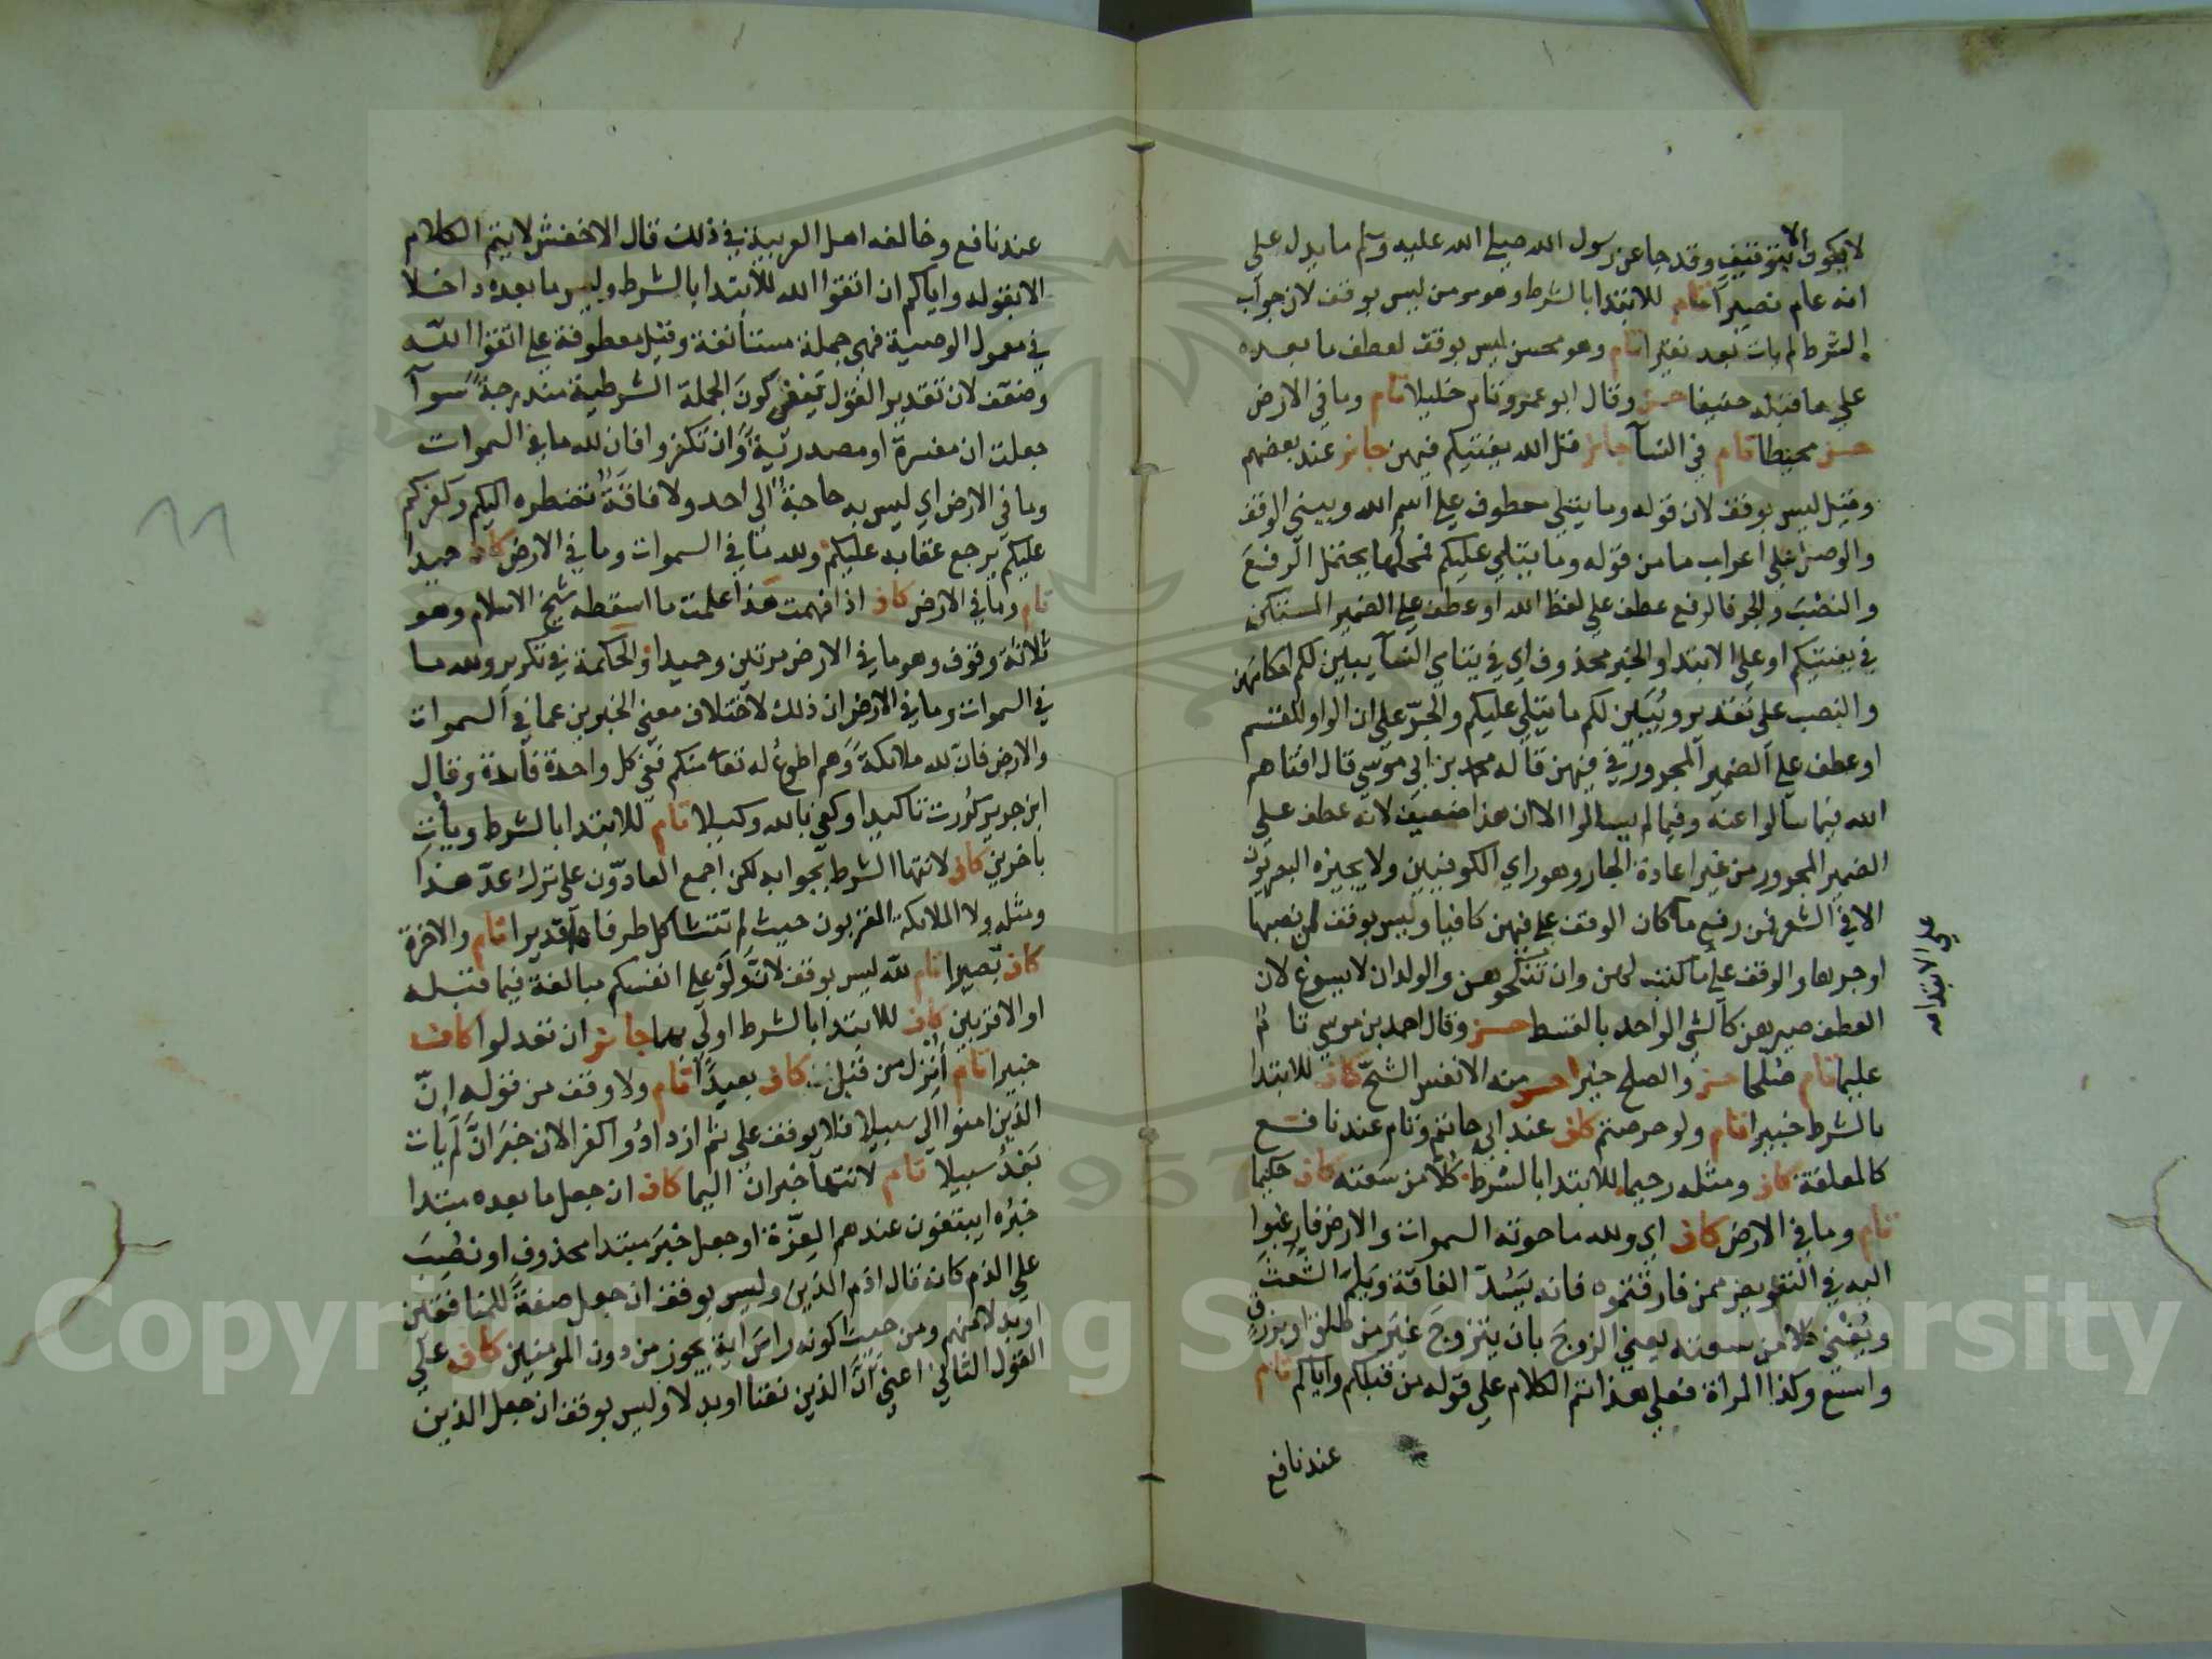 لا يكون الا بتوقيف وقد جا عن رسول الله صلي الله عليه وسلم ما يدل علي
انه عام نصيرا تام للابتدا بالشرط وهو ومن ليس بوقف لان جواب
الشرط لم يات بعد نقيرا تام وهو محسن ليس بوقف لعطف ما بعده
علي ما قبله حنيفا حسن وقال ابو عمرو تام خليلا تام وما في الارض
حسن محيطا تام في النسآ جائز قل الله يفتيكم فيهن جائز عند بعضهم
وقيل ليس بوقف لان قوله وما يتلي معطوف علي اسم الله ويبني الوقف
والوصل علي اعراب ما من قوله وما يتلي عليكم فمحلها يحتمل الرفع
والنصب والجر فالرفع عطف علي لفظ الله او عطف علي الضمير المستكن
في يفتيكم او علي الابتدا والخبر محذوف اي في يتامي النسآ يبين لكم احكامهن
والنصب علي تقدير ويبين لكم ما يتلي عليكم والجر علي ان الواو للقسم
او عطف علي الضمير المجرور في فيهن قاله محمد بن ابي موسي قال افتاهم
الله فيما سالوا عنه وفيما لم يسالوا الا ان هذا ضعيف لانه عطف علي
الضمير المجرور من غير اعادة الجار وهو راي الكوفيين ولا يجيزه البصريون
الا في الشعر فمن رفع ما كان الوقف علي فيهن كافيا وليس بوقف لمن نصبها
او جرها والوقف علي ما كتب لهن وان تنكحوهن والولدان لا يسوغ لان
علي الابتدا صح
العطف صيرهن كالشي الواحد بالقسط حسن وقال احمد بن موسي تام
عليما تام صلحا حسن والصلح خير احسن منه الانفس الشح كاف للابتدا
بالشرط خبيرا تام ولو حرصتم كاف عند ابي حاتم وتام عند نافع
كالمعلقة كاف ومثله رحيما للابتدا بالشرط كلا من سعته كاف حكيما
تام وما في الارض كاف اي ولله ما حوته السموات والارض فارغبوا
اليه في التعويض ممن فارقتموه فانه يسد الفاقة ويلم الشعث
ويغني كلا من سعته يغني الزوج بان يتزوج غير من طلق او برزق
واسع وكذا المراة فعلي هذا تم الكلام علي قوله من قبلكم واياكم تام
عند نافع
عند نافع وخالفه اهل العربية في ذلك قال الاخفش لا يتم الكلام
الا بقوله واياكم ان اتقوا الله للابتدا بالشرط وليس ما بعده داخلا
في معمول الوصية فهي جملة مستأنفة وقيل معطوفة علي اتقوا الله
وضعف لان تقدير القول ينفي كون الجملة الشرطية مندرجة سوآ
جعلت ان مفسرة او مصدرية وان تكفروا فان لله ما في السموات
وما في الارض اي ليس به حاجة الي احد ولا فاقة تضطره اليكم وكفركم
عليكم يرجع عقابه عليكم ولله ما في السموات وما في الارض كاف حميدا
تام وما في الارض كاف اذا فهمت هذا علمت ما اسقطه شيخ الاسلام وهو
ثلاثة وقوف وهو ما في الارض مرتين وحميدا والحكمة في تكرير ولله ما
في السموات وما في الارض ان ذلك لاختلاف معني الخبرين عما في السموات
والارض فان لله ملائكة وهم اطوع له تعا منكم ففي كل واحدة فائدة وقال
ابن جرير كررت تاكيدا وكفي بالله وكيلا تام للابتدا بالشرط ويأت
باخرين كاف لانتها الشرط بجوابه لكن اجمع العادون علي ترك عد هذا
ومثله ولا الملائكة المقربون حيث لم تتشاكل طرفاه قديرا تام والاخرة
كاف بصيرا تام لله ليس بوقف لان ولو علي انفسكم مبالغة فيما قبله
او الاقربين كاف للابتدا بالشرط اولي بهما جائز ان تعدلوا كاف
خبيرا تام أنزل من قبل كاف بعيدا تام ولا وقف من قوله ان
الذين امنوا الي سبيلا فلا يوقف علي ثم ازدادوا كفرا لان خبر ان لم يات
بعد سبيلا تام لانتهآ خبر ان اليما كاف ان جعل ما بعده مبتدا
خبره ايبتغون عندهم العزة او جعل خبر مبتدا محذوف او نصب
علي الذم كانه قال اذم الذين وليس بوقف ان جعل صفة للمنافقين
او بدلا منهم ومن حيث كونه راس اية يجوز من دون المومنين كاف علي
القول الثاني اعني ان الذين نعتا او بدلا وليس بوقف ان جعل الذين